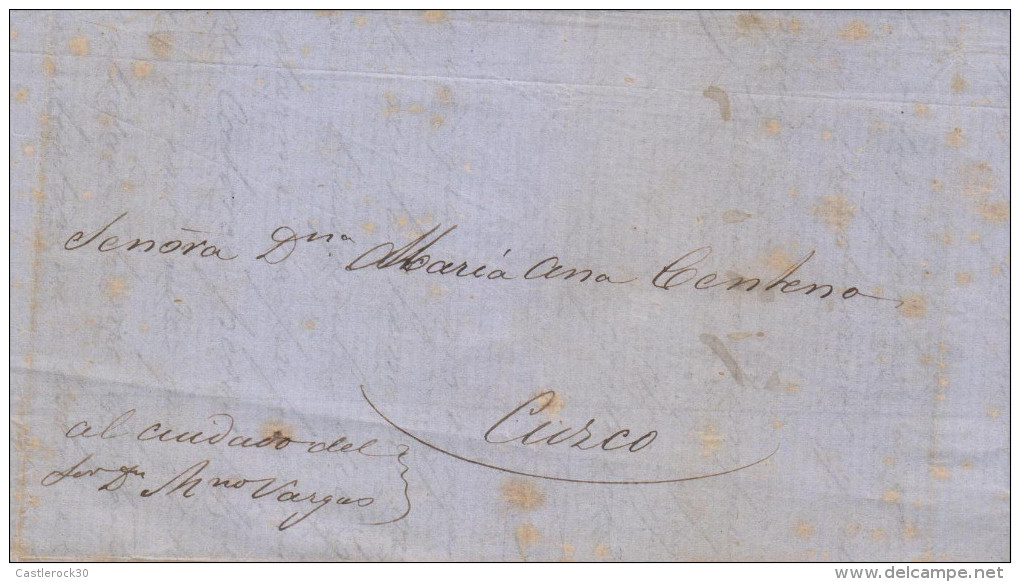 Señora Dna. María Ana Centeno
Cuzco
al cuidado del
Sor Dn Mno Vargas
Castlerock30
delcampe.net